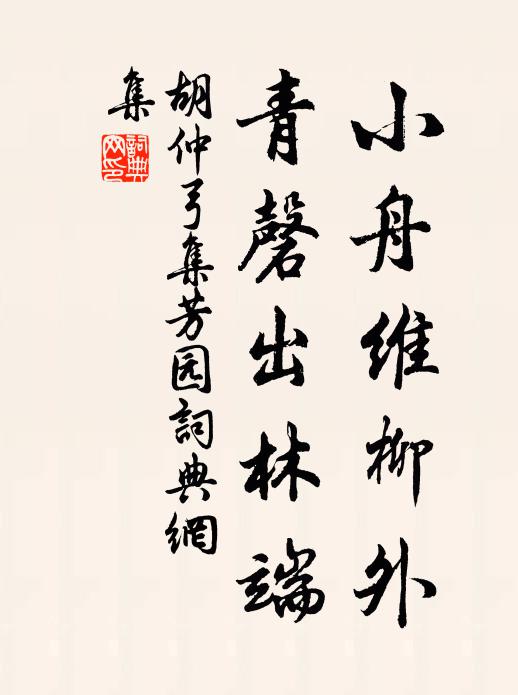 小舟維柳外
青磬出林端
胡仲弓集芳园詞典網
集
詞典網印